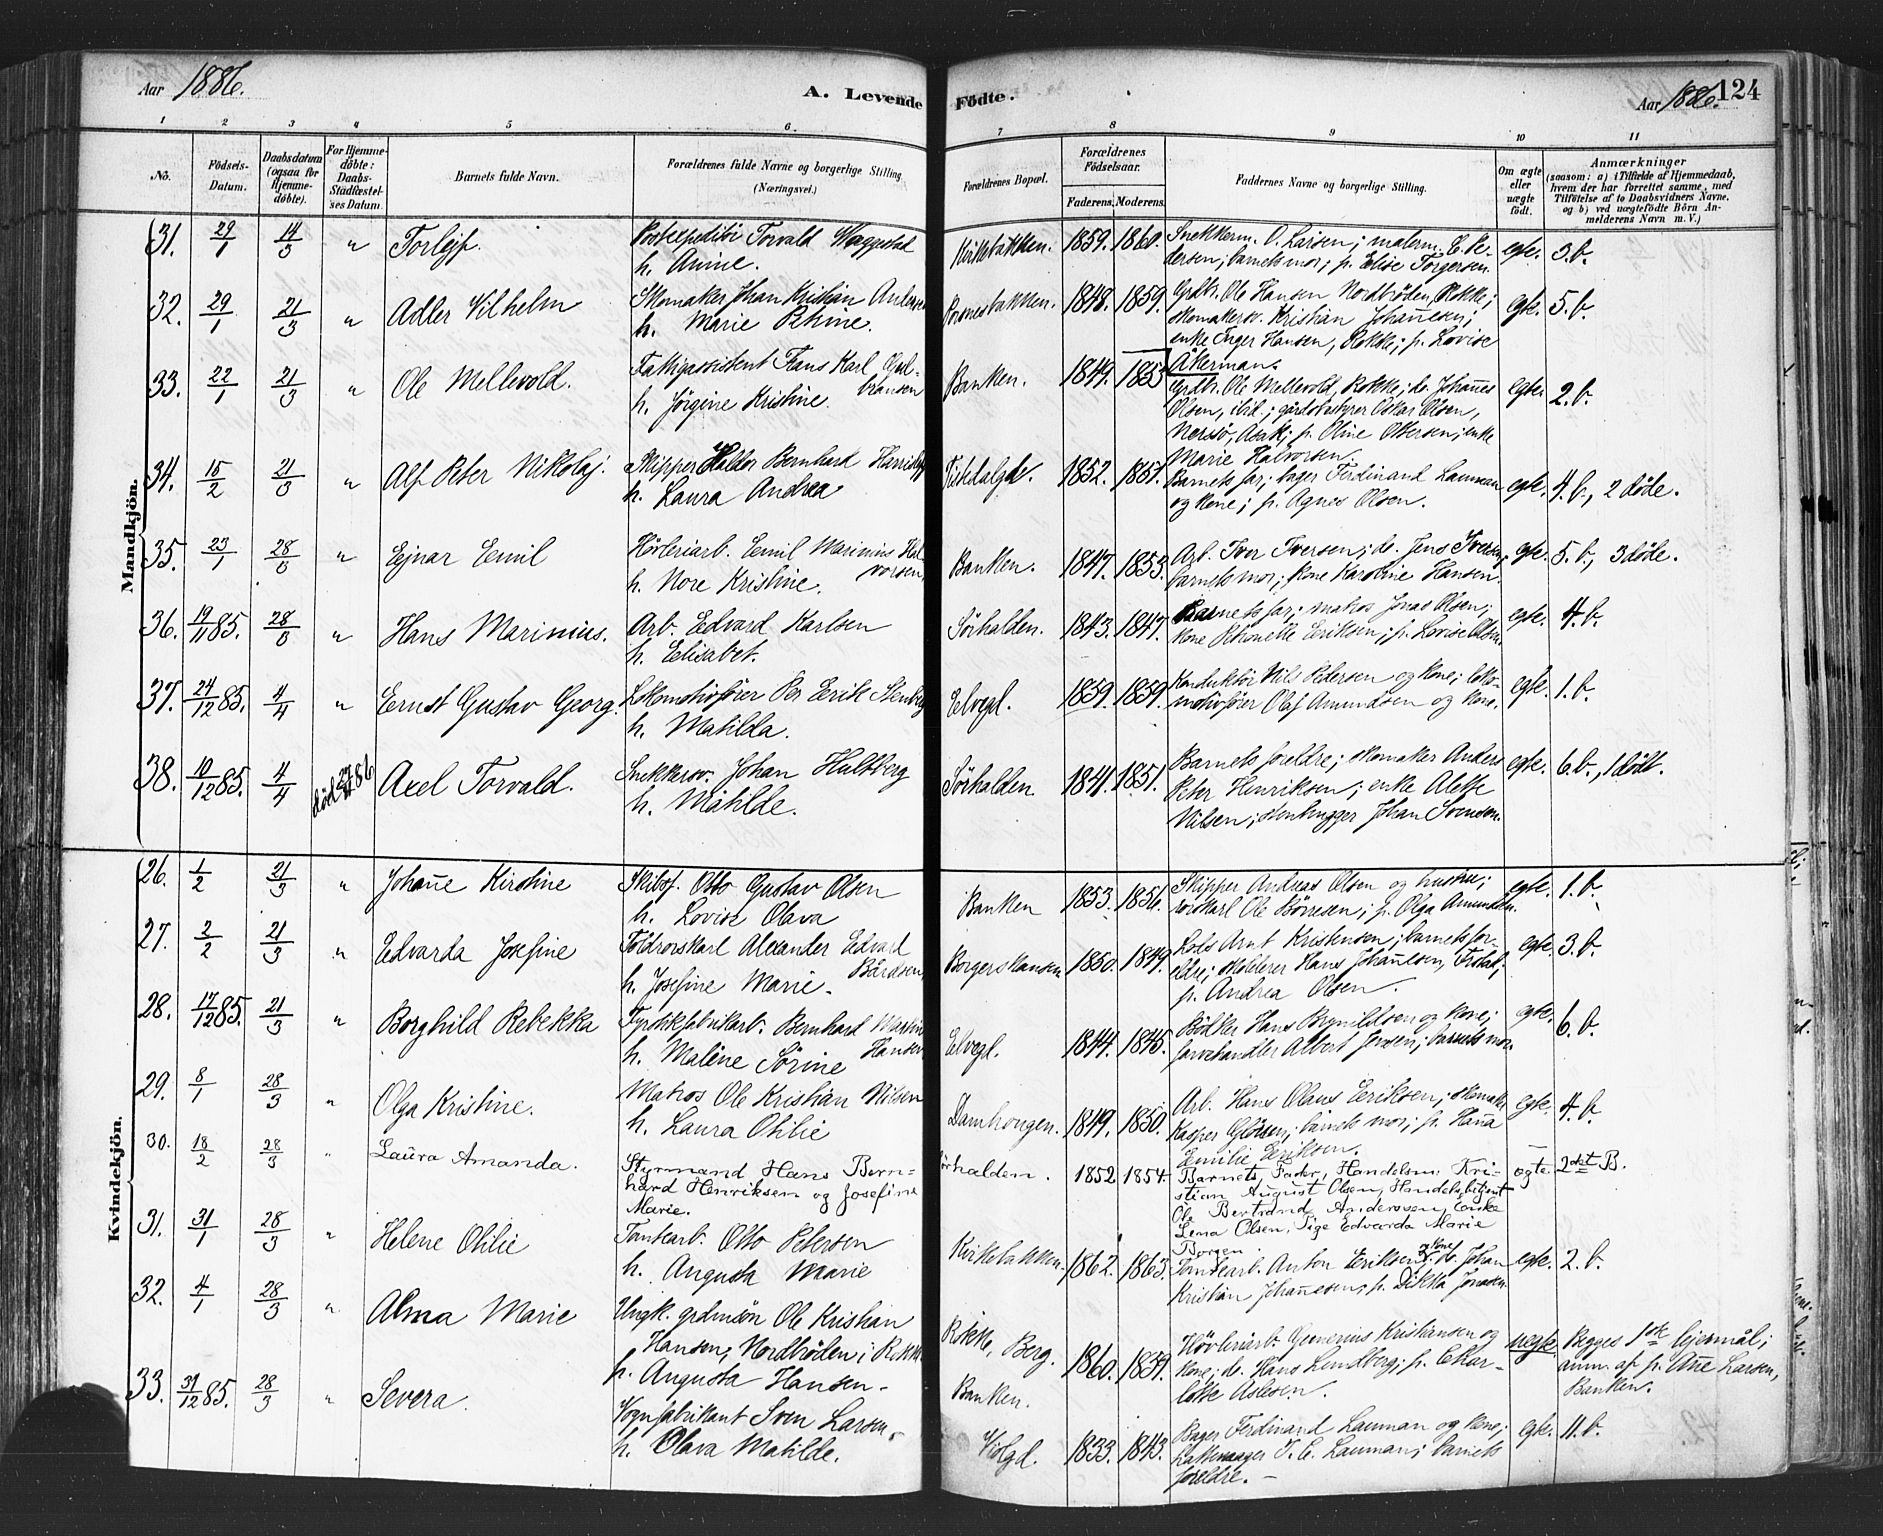 Aar 1886.
A. Levende Födte.
Aar 1886. 124
1 2 3 4 5 6 7 8 9 10 11
No.
Födsels-Datum.
Daabsdatum (ogsaa for Hjemmedöbte).
For Hjemmedöbte: Daabs-Stadfæstelses Datum.
Barnets fulde Navn.
Forældrenes fulde Navne og borgerlige Stilling. (Næringsvei.)
Forældrenes Bopæl.
Forældrenes Födselsaar.
Faderens. Moderens.
Faddernes Navne og borgerlige Stilling.
Om ægte eller uægte födt.
Anmærkninger
(saasom: a) i Tilfælde af Hjemmedaab, hvem der har forrettet samme, med Tilföielse af to Daabsvidners Navne. og b) ved uægtefödte Börn Anmelderens Navn m. V.)
Mandkjön.
31. 29/1 14/3 " Torleif. Torvald Waggestad
h. Anine. Kirkebakken. 1859. 1860. Snekkerm. O. Larsen; malerm. C. Pe-
dersen; barnets mor; p. Elise Torgersen. egte. 3. b.
32. 29/1 21/3 " Adler Vilhelm Skomaker Johan Kristian Anders
h. Marie Petrine. 1848. 1859. Grdbr. Ole Hansen Nordbröden, Rokke;
skomakersv. Kristian Johanesen;
enke Inger Hansen, Rokke; p. Lovise
Åkerman. egte. 5. b.
33. 22/1 21/3 " Ole Mellevold. Fattigassistent Frans Karl Gul-
bransen
h. Jörgine Kristine. Banken. 1849. 1853 Grdbr. Ole Mellevold, Rokke; do. Johanes
Olsen, ibid.; gårdsbestyrer Oskar Olsen,
Nersö, Asak; p. Oline Ottersen; enke
Marie Halvorsen. egte. 2. b.
34. 15/2 21/3 " Alf Peter Nikolaj. Skipper Haldor Bernhard
h. Laura Andrea Tistedalgd. 1852. 1857. Barnets far; bager Ferdinand Lauman
og kone; p. Agnes Olsen. egte. 4. b., 2 döde.
35. 23/1 28/3 " Ejnar Emil Hövleriarb. Emil Marinius Hal-
vorsen,
h. Nore Kristine. Banken. 1847. 1853. Arb. Ivor Iversen; do. Jens Iversen,
barnets mor; kone Karoline Hansen. egte. 5. b., 3 döde.
36. 19/11 85. 28/3 " Hans Marinius. Arb. Edvard Karlsen
h. Elisabet. Sörhalden. 1843. 1847. Barnets far; matros Jonas Olsen;
kone Petronelle Eriksen; p. Lovise Olsen. egte. 4. b.
37. 24/12 85. 4/4 " Ernst Gustav Georg. Lokomotivförer Per Erik Stenberg
h. Matilda. Elvegl. 1859. 1859. Konduktör Nils Pedersen og kone; loko-
motivförer Olaf Amundsen og kone. egte. 1. b.
38. 10/12 85. 4/4 död 86 Axel Torvald. Snekkersv. Johan Hultberg
h. Matilde. Sörhalden 1841. 1851. Barnets foreldre; skomaker Anders
Peter Henriksen; enke Alette
Nilsen; stenhugger Johan Svensen. egte. 6. b., 1 dödt.
Kvindekjön.
26. 1/2 21/3 " Johane Kirstine Skibsf. Otto Gustav Olsen
h. Lovise Olava Banken 1853. 1856. Skipper Andreas Olsen og hustru;
rorskarl Ole Börresen; p. Olga Amundsen. egte. 1. b.
27. 2/2 21/3 " Edvarda Josefine Toldrorskarl Alexander Edvard
Bårdsen,
h. Josefine Marie. Borgerskansen 1850. 1849. Lods Arnt Kristensen; barnets for-
eldre; Hans Johanesen,
p. Andrea Olsen. egte. 3. b.
28. 17/12 85. 21/3 " Borghild Rebekka Fyrstikfabrikarb. Bernhard Martin
Hansen
h. Maléne Sörine Elvegl. 1844. 1845. Bödker Hans Brynildsen og kone;
farvehandler Albert Jensen; barnets mor. egte. 6. b.
29. 8/1 28/3 " Olga Kristine. Matros Ole Kristian Nilsen
h. Laura Otilie Damhougen. 1849. 1850. Arb. Hans Olaus Eriksen; skomaker
Kasper barnets mor; p. Hana
Emilie Eriksen. egte. 4. b
30. 18/2 28/3 " Laura Amanda. Styrmand Hans Bern-
hard Henriksen og Josefine
Marie. Sörhalden. 1852 1854. Barnets Fader, Handelsm. Kri-
stian August Olsen, Handelsbetjent
Ole Bertrand Andersen, Enke
Lena Olsen, Pige Edvarda Marie
Borgen. ægte. 2det B.
31. 31/1 28/3 " Helene Otilie Tomtearb. Otto Petersen
h. Augusta Marie Kirkebakken 1862. 1863. Tomtearb. Anton Eriksen og kone; do. Johan
Kristian Johanesen; p. Dikka Jonasen. egte. 2. b.
32. 4/1 28/3 " Alma Marie Ungk. grdmsön Ole Kristian
Hansen, Nordbröden i Rokke
p. Augusta Hansen. Rokke, Berg.
Banken. 1860. 1859. Hövleriarb. Gunerius Kristiansen og
kone; do. Hans Lundberg; p. Char-
lotte Aslesen. uegte Begges 1ste lejermål;
anm. af p. Ane Larsen,
Banken.
33. 31/12 85. 28/3 " Severa. Vognfabrikant Sven Larsen
h. Olava Matilde. Volgd. 1833. 1843. Bager Ferdinand Lauman og kone;
T. E. Lauman; barnets
foreldre. egte. 11. b.